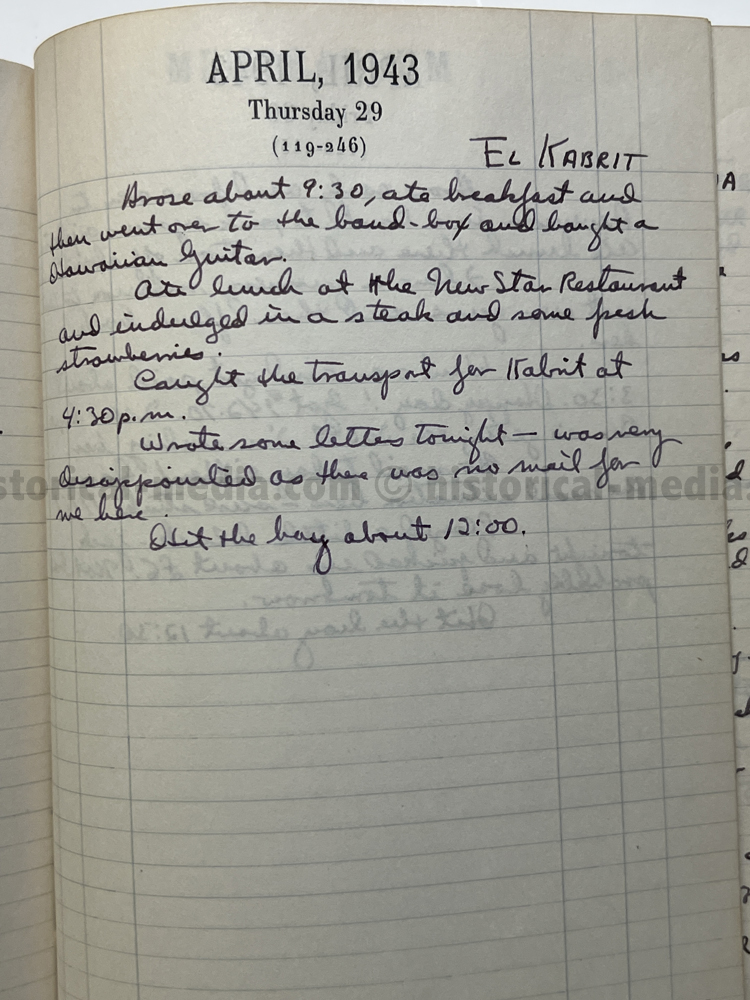 APRIL, 1943
Thursday 29
(119-246)
EL KABRIT
Arose about 9:30, ate breakfast and
then went over to the band-box and bought a
Hawaiian Guitar.
Ate lunch at the New Star Restaurant
and indulged in a steak and some fresh
strawberries.
Caught the transport for Kabrit at
4:30 p.m.
Wrote some letters tonight — was very
disappointed as there was no mail for
me here.
Hit the hay about 12:00.
storical-media.com © historical-media